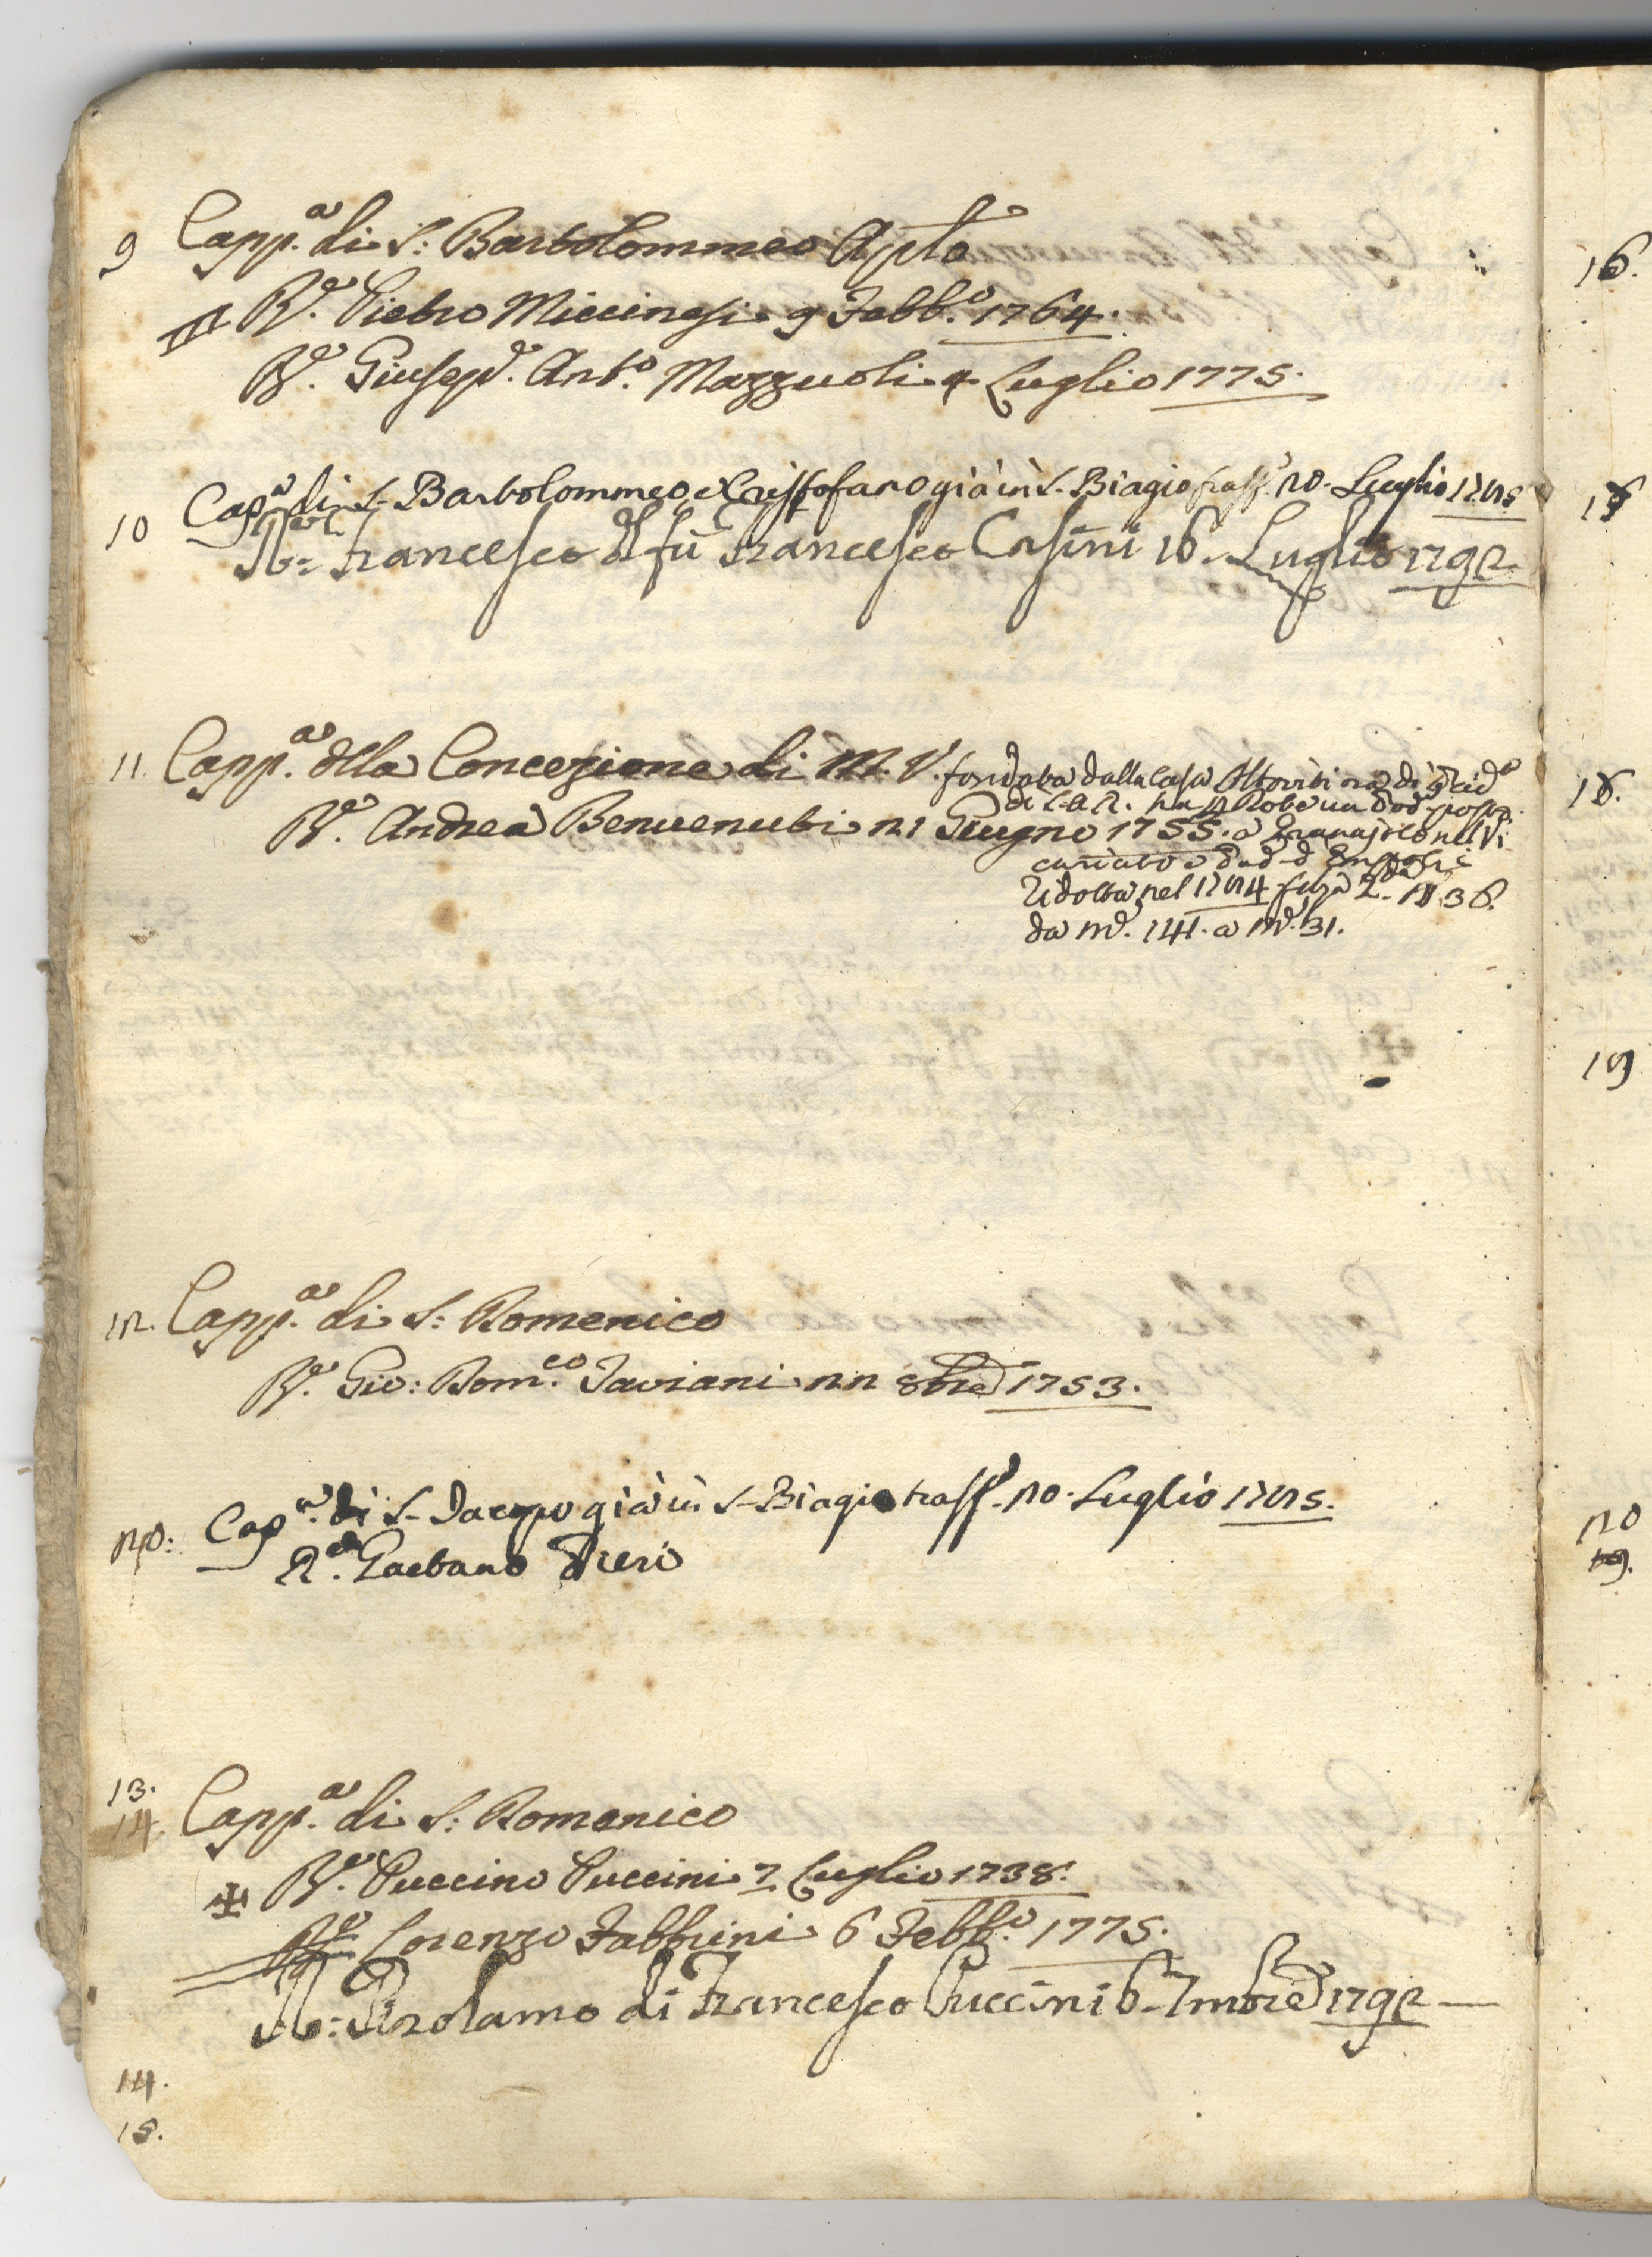 9 Capp.ª di S: Bartolommeo Aplo
R.º Pietro Miccinesi 9 Febb.º 1764.
R.º Giusep.e Ant.º Mazzuoli 4 Luglio 1775.
10 Cap.ª di S. Bartolommeo e Cristofano già in S. Biagio trasf.ª 20. Luglio 1785
Francesco del fù Francesco Casini 16. Luglio 1792
11. Capp.ª della Concezione di M. V. fondata dalla Casa Altoviti
di S. A. R. ha
R.º Andrea Benvenuti 21 Giugno 1755. a nel Vi
cariato d'Empoli è
ridotta nel 1784 2. 36.
da m. 141. a m. 31.
12. Capp.ª di S: Domenico
R.º Gio: Dom.co Taviani 22 8bre 1753.
20: Cap.ª di S. Iacopo già in S. Biagio trasf.ª 20. Luglio 1785.
R.º Gaetano Pieri
13.
14. Capp.ª di S: Domenico
R.º Puccino Puccini 7 Luglio 1738.
R.º Lorenzo Fabbrini 6 Febb.º 1775.
Girolamo di Francesco Puccini 6. 7mbre 1792
14.
15.
16.
18.
19
20
19.